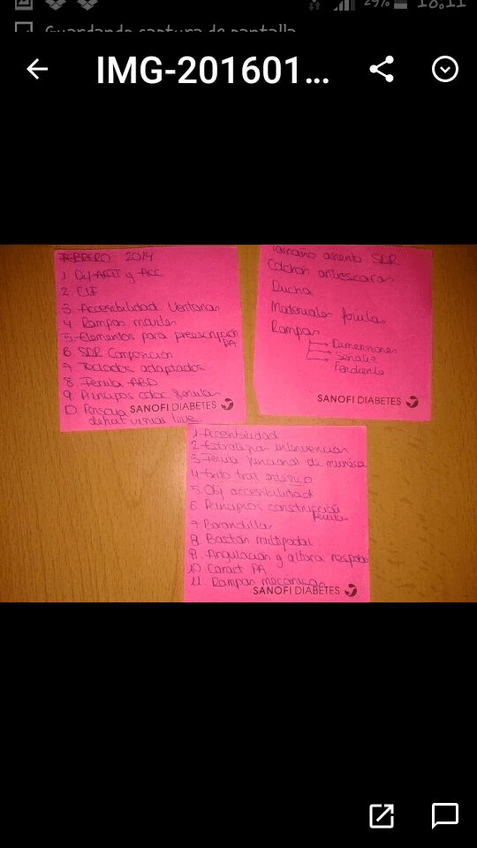 29% 18:11
Guardando captura de pantalla
IMG-201601...
FEBRERO 2014
1.
2. CIF
3 Accesibilidad Ventanas
4 Rampas móviles
5. Elementos para preescripción
PA
6. SDR Composición
7. Teclados adaptados
8. Ferula ABD
9. Principios coloc ferulas
10. Persona
deficit visual leve
SANOFI DIABETES
Tamaño asiento SDR
Colchón antiescaras
Ducha
Materiales ferulas
Rampas
Dimensiones
Señaliz
Pendiente
SANOFI DIABETES
1. Accesibilidad
2. Estrategias intervención
3. Ferula funcional de muñeca
4.
5. Obj accesibilidad
6. Principios construcción
ferulas
7. Barandilla
8. Bastón multipodal
9. Angulación y altura respaldo
10. Caract PA
11. Rampas mecánicas
SANOFI DIABETES